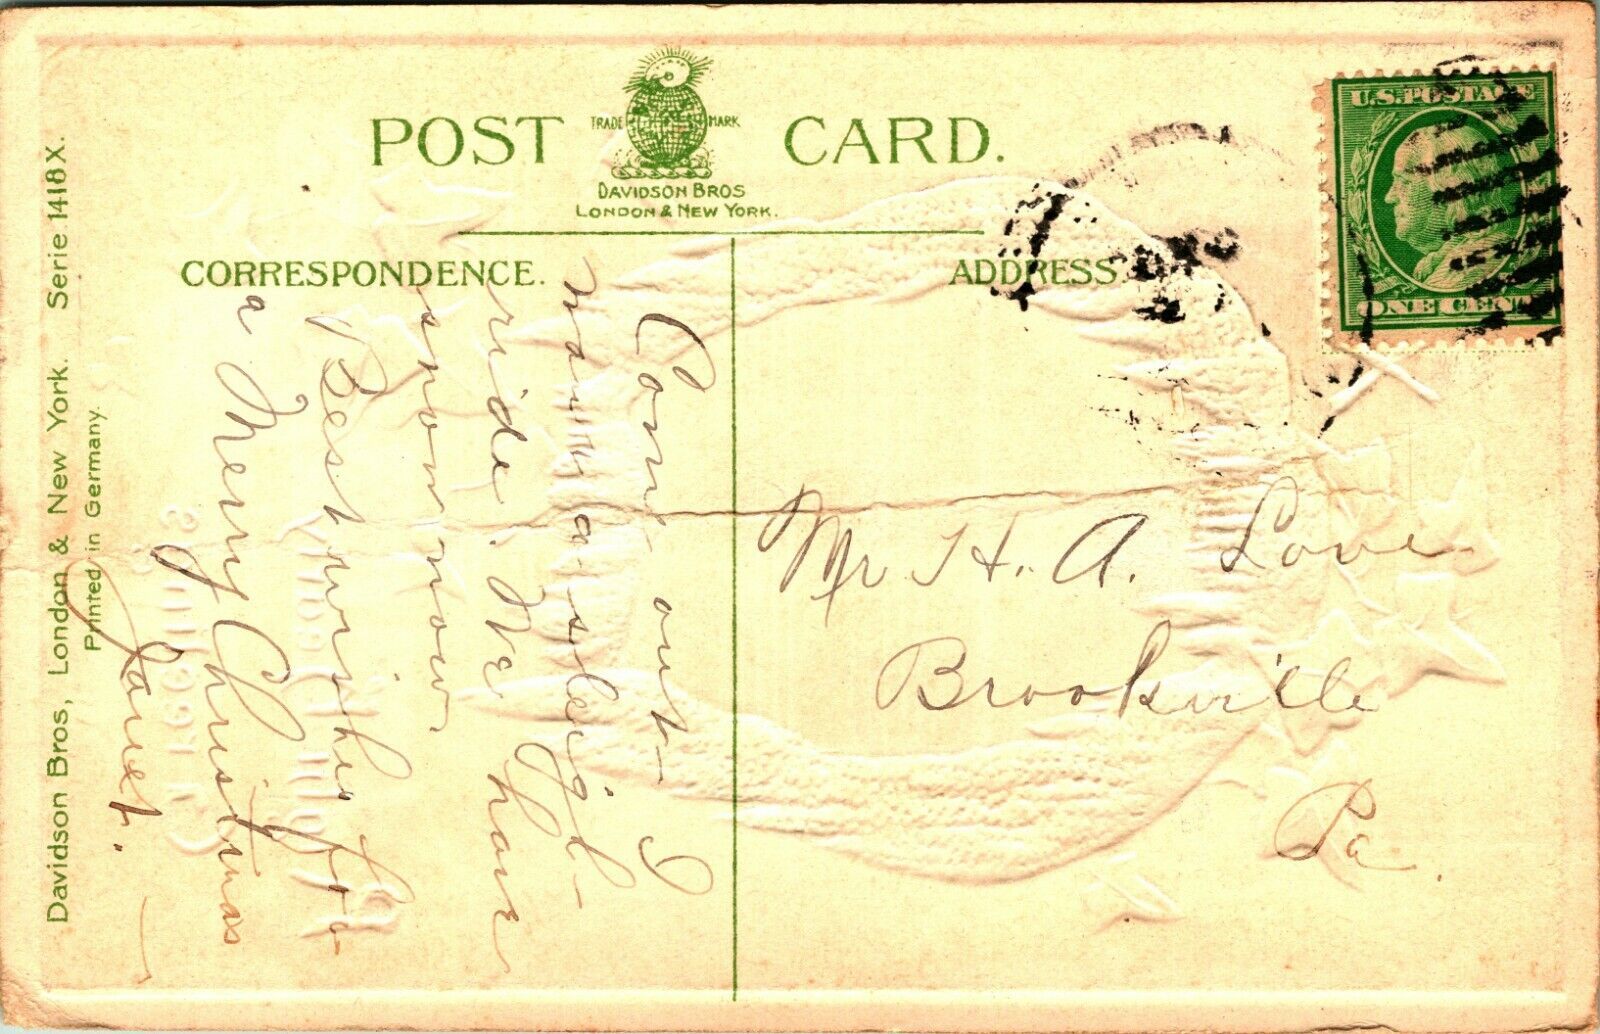 POST CARD.
TRADE MARK
DAVIDSON BROS
LONDON & NEW YORK.
CORRESPONDENCE.
ADDRESS
U.S. POSTAGE
ONE CENT
DEC
Come out I
want a sleigh-
ride. We have
snow now.
Best wishes for
a Merry Christmas
Janet.
Mr H. A. Love
Brookville
Pa.
Davidson Bros, London & New York. Serie 1418X.
Printed in Germany.